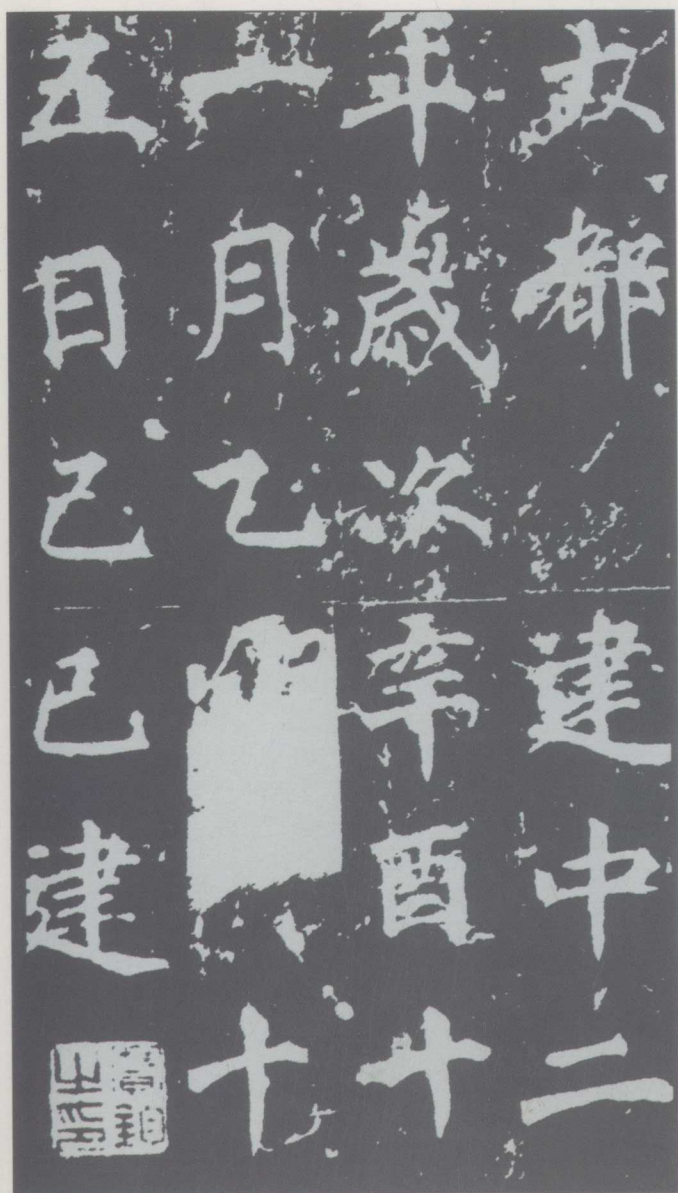 都建中二
年歲次辛酉十
一月乙十
五日己巳建